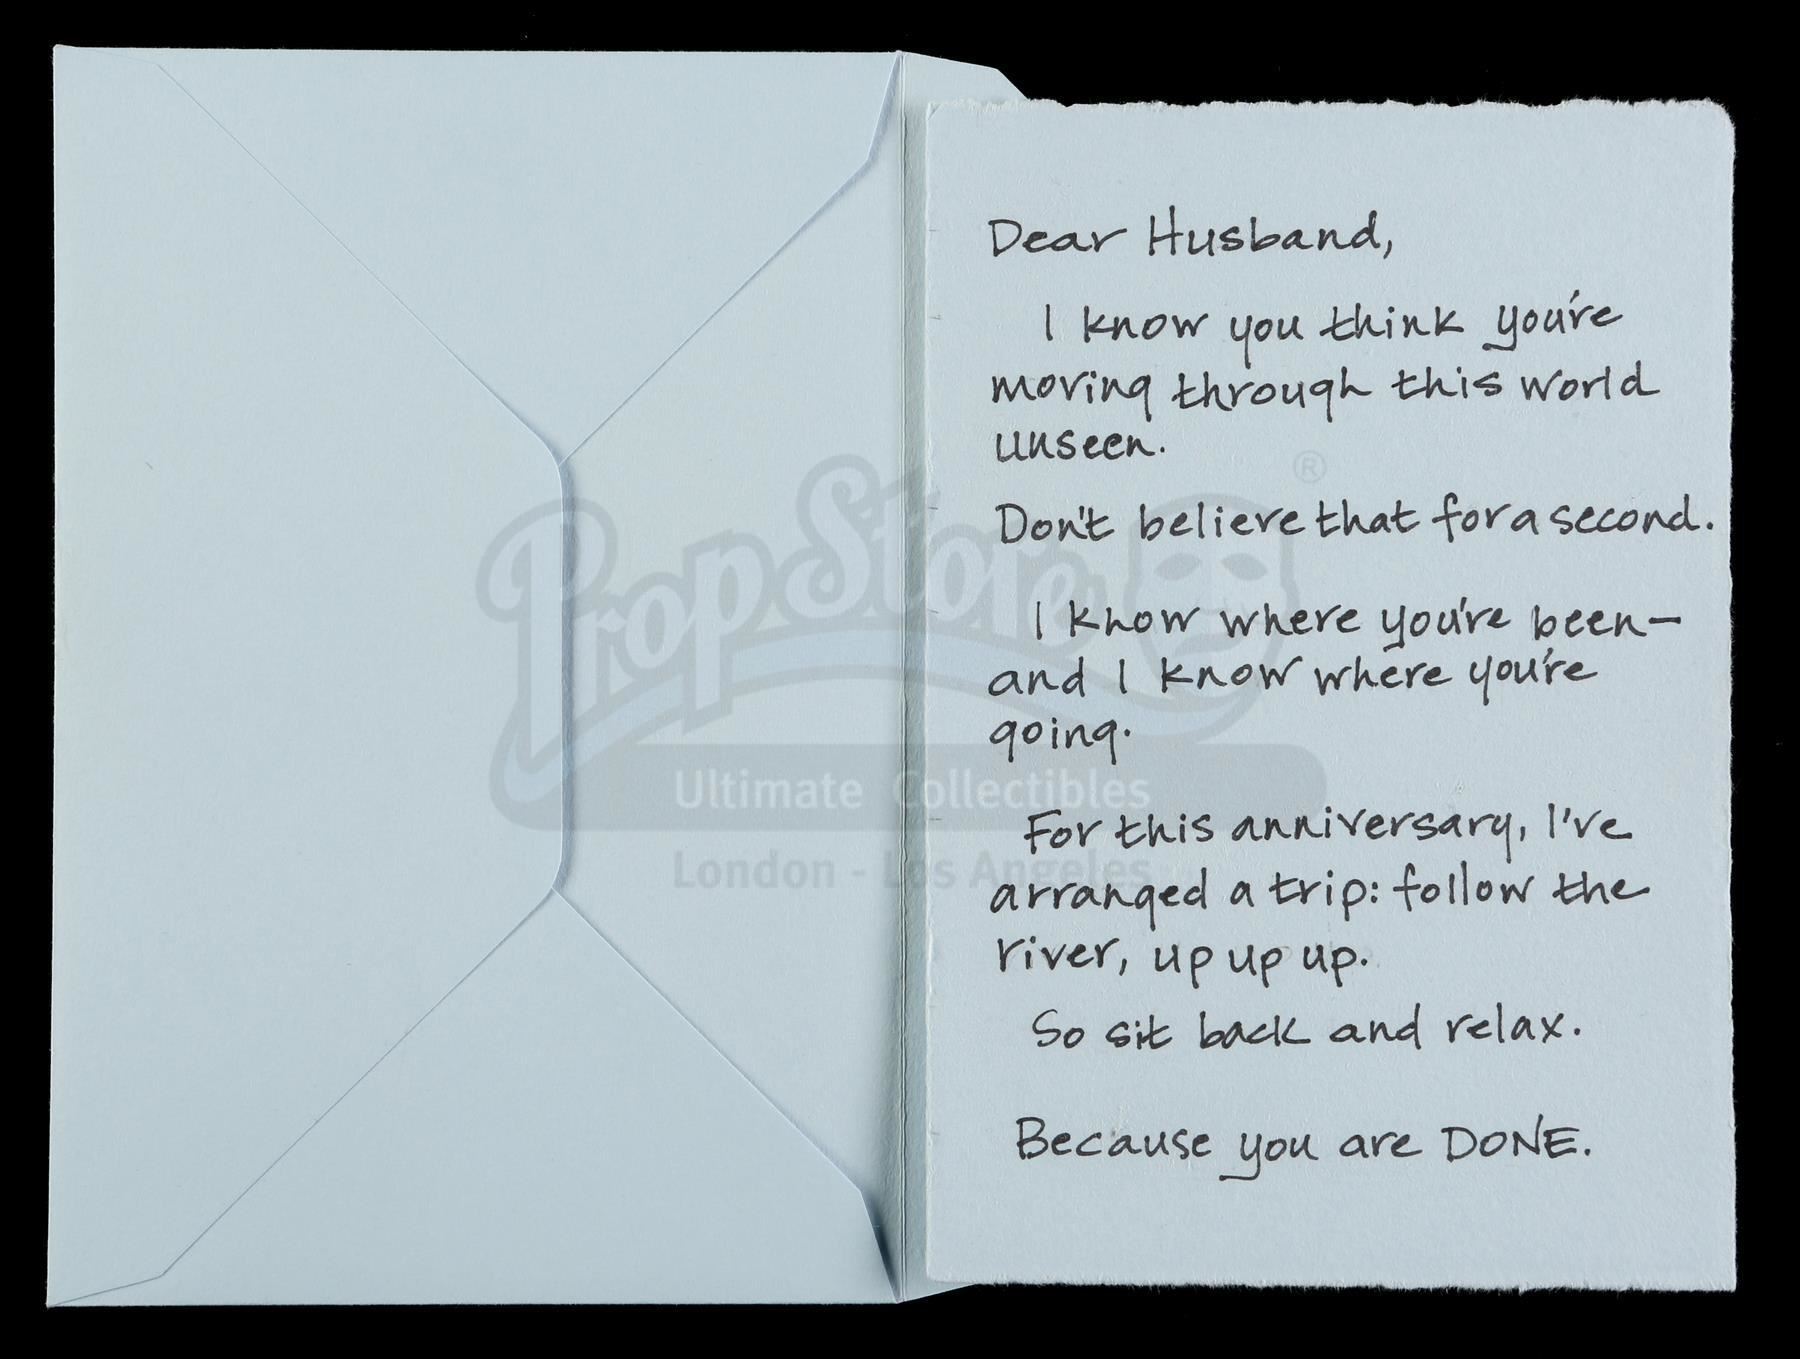 Dear Husband,
I know you think you're
moving through this world
unseen.
Don't believe that for a second.
I know where you're been—
and I know where you're
going.
For this anniversary, I've
arranged a trip: follow the
river, up up up.
So sit back and relax.
Because you are DONE.
PropStore
®
Ultimate Collectibles
London - Los Angeles